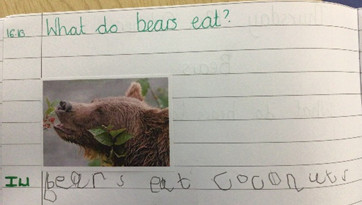 What do bears eat?
bears eat coconuts